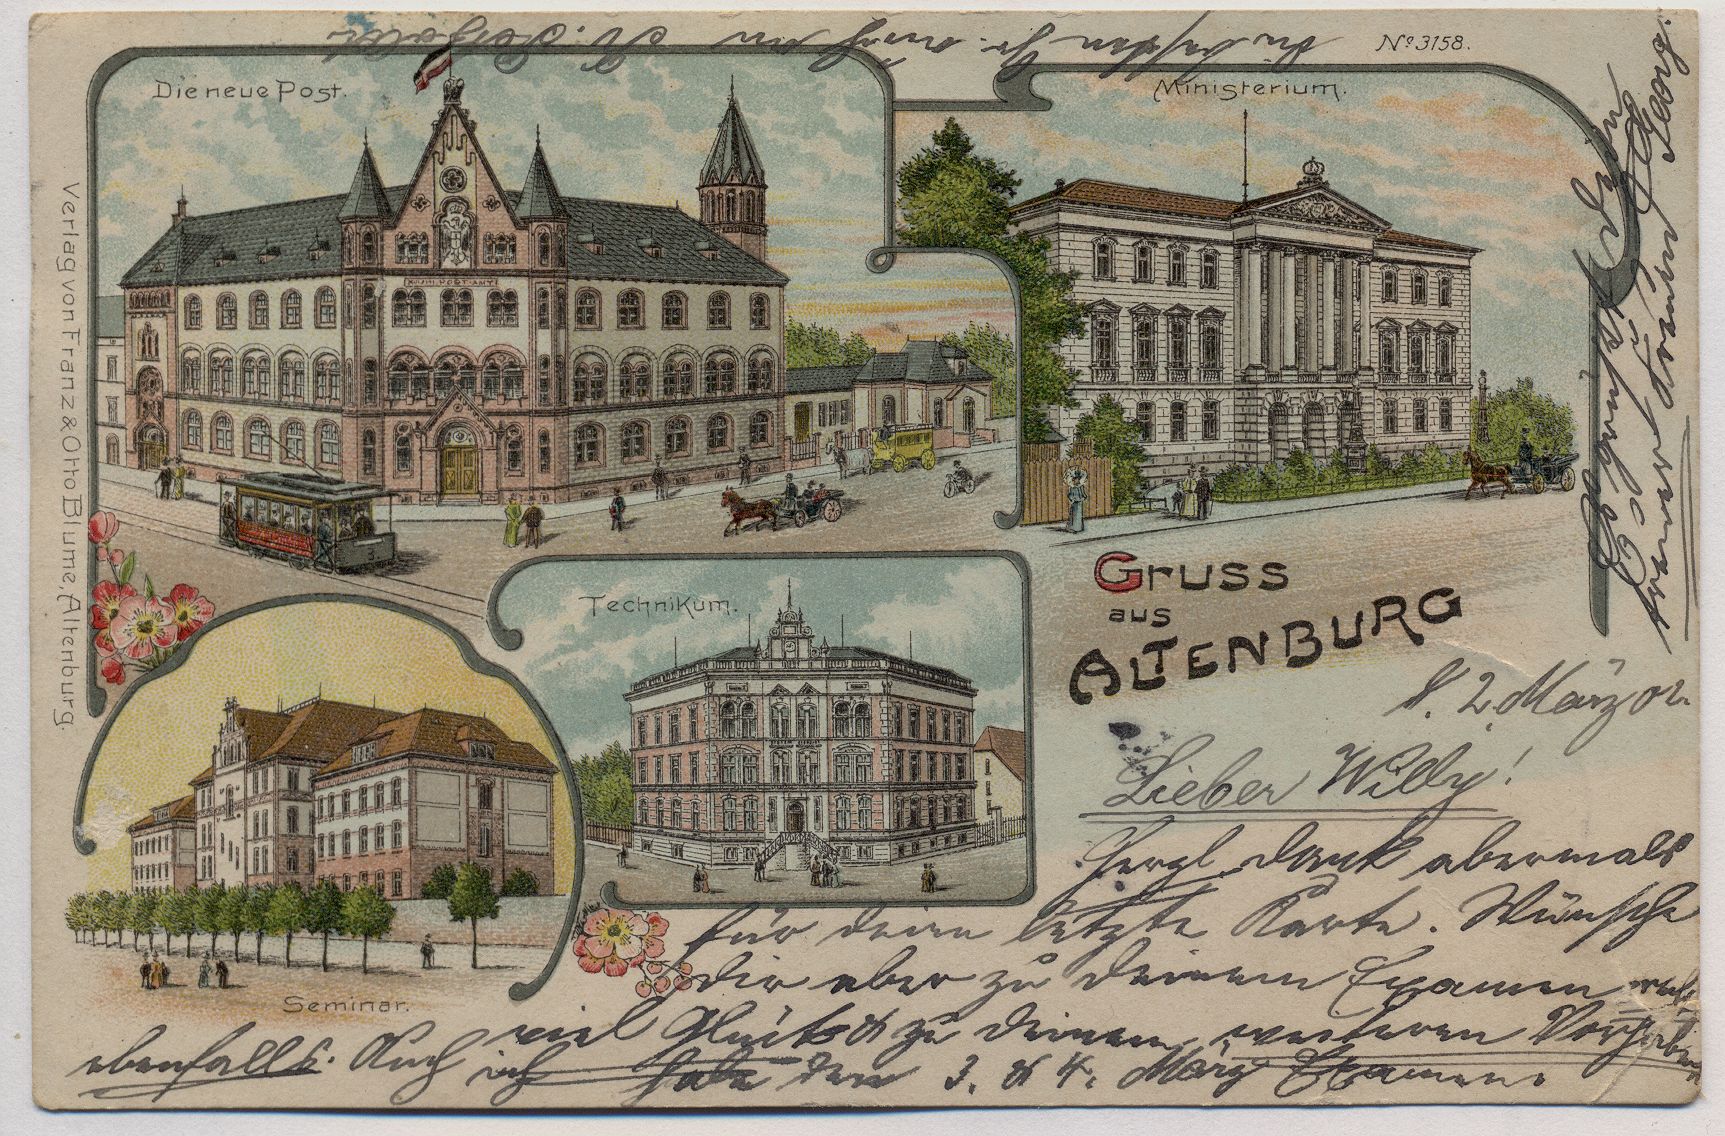 Nº 3158.
Die neue Post.
Ministerium.
KAISERL. POSTAMT
3
Technikum.
Seminar.
Gruss
aus
ALTENBURG
Verlag von Franz & Otto Blume, Altenburg.
2. März 02.
Lieber Willy!
Herzl. Dank abermals
für deine letzte Karte. Wünsche
dir aber zu deinem Examen recht
viel Glück & zu deinem weiteren Vorhaben
ebenfalls. Auch ich habe den 3. & 4. März Examen.
Es grüsst dein
treuer Freund Georg.